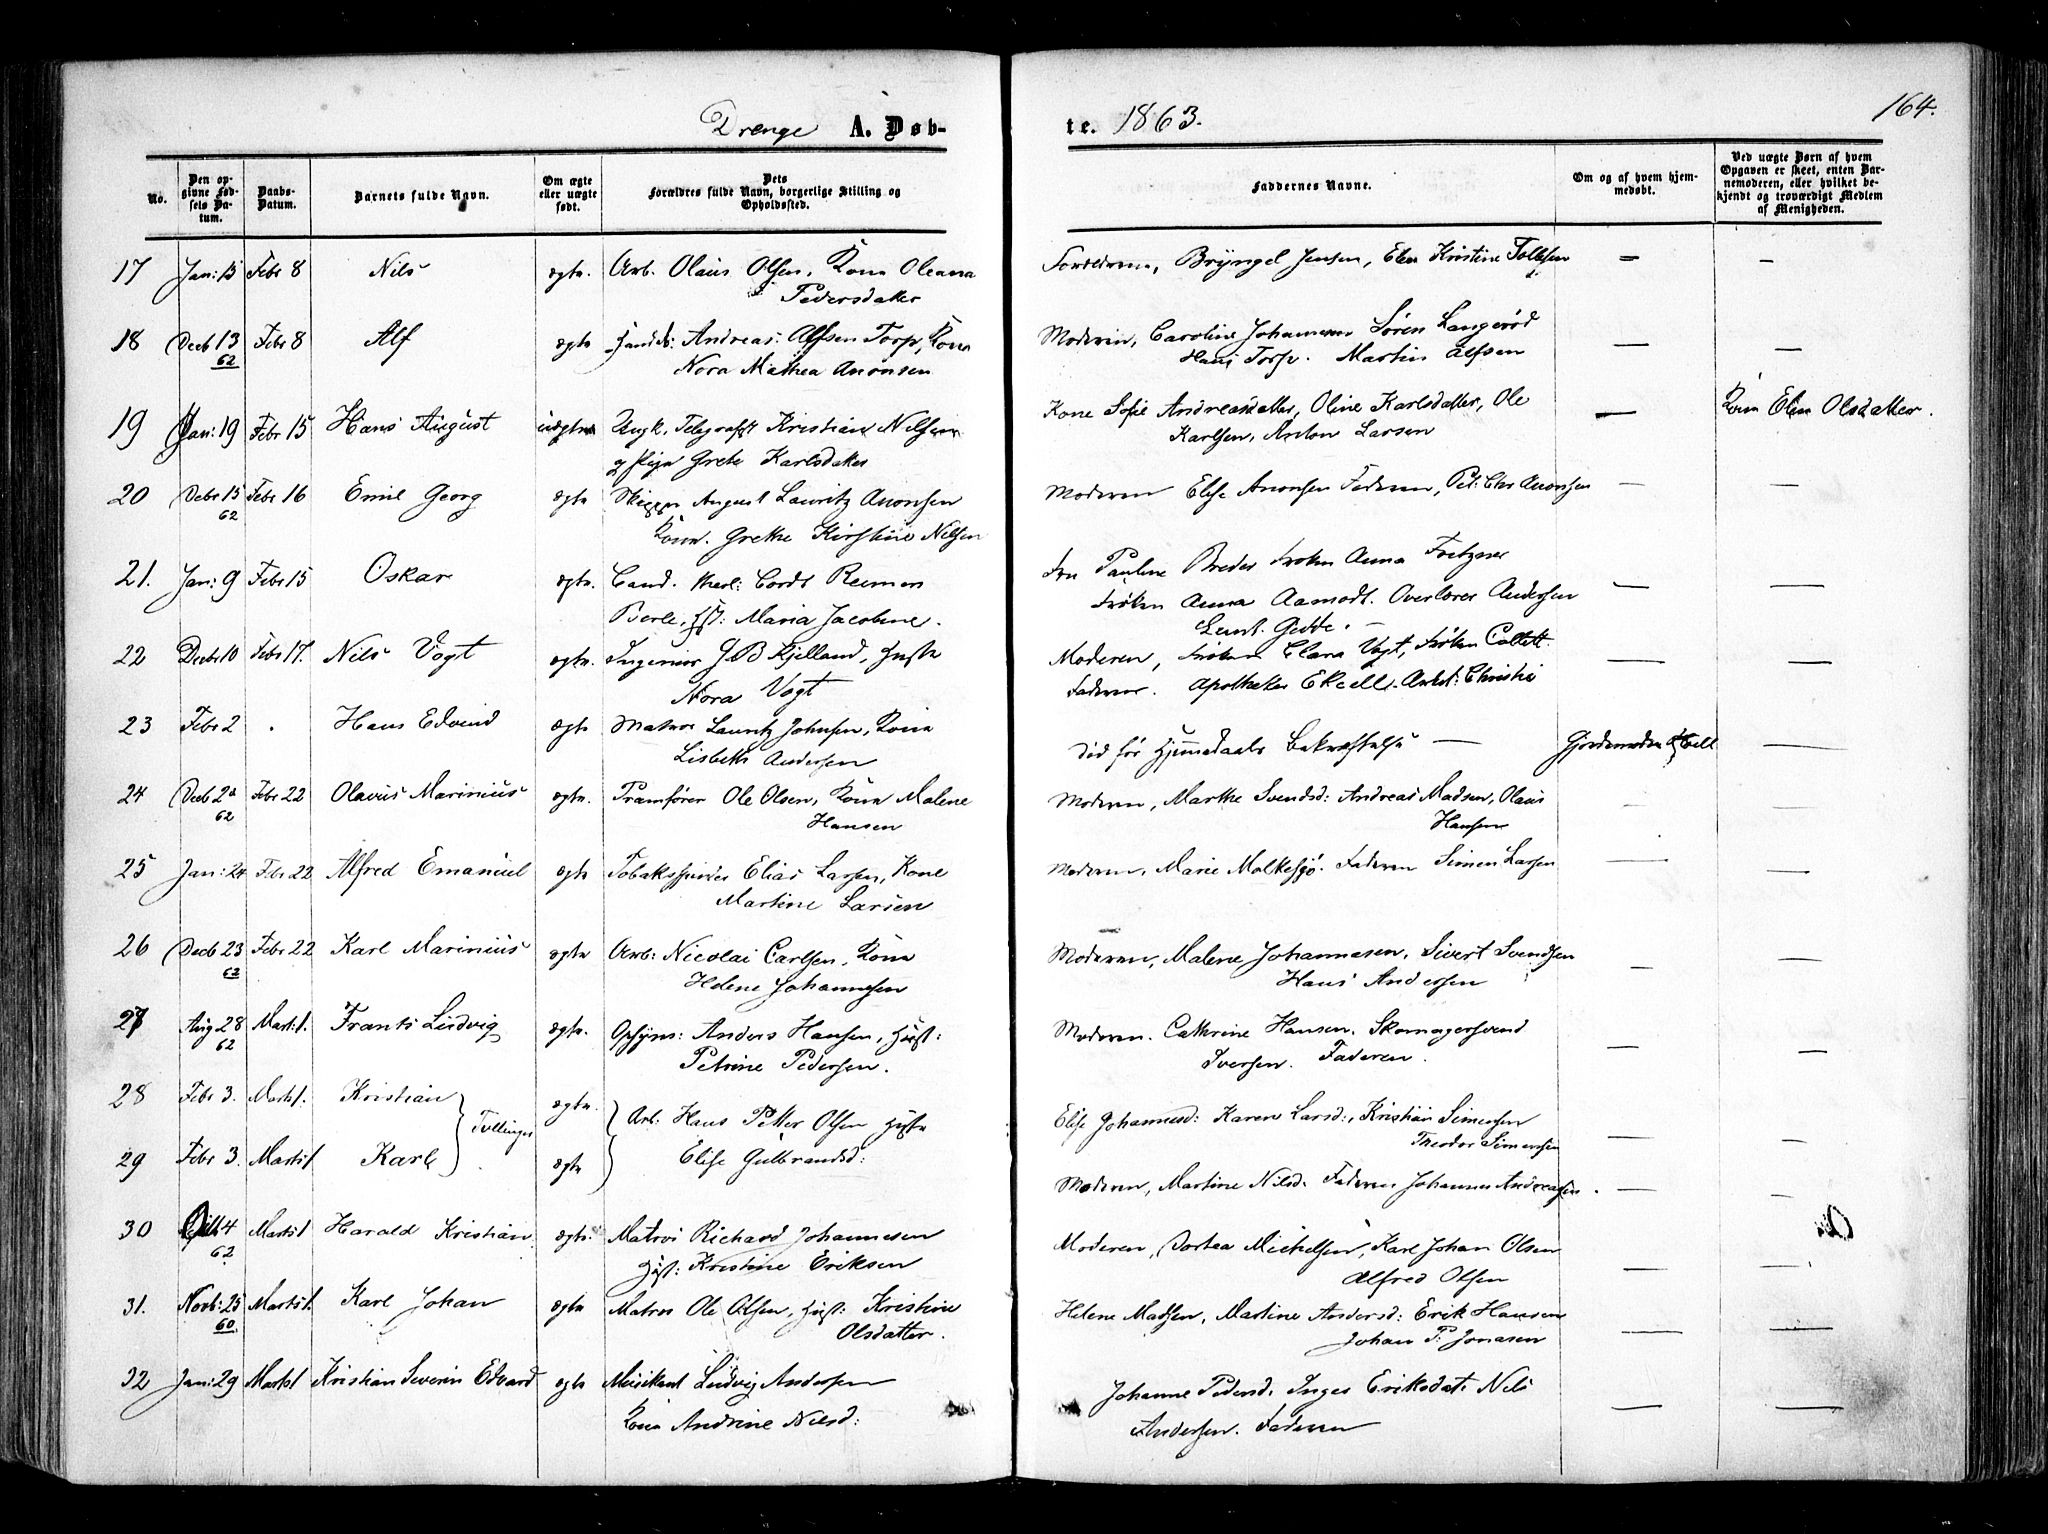 Drenge A. Døb-
te. 1863.
164.
No.
Den op-
givne Fød-
sels Da-
tum.
Daabs-
Datum.
Barnets fulde Navn.
Om ægte
eller uægte
født.
Dets
Forældres fulde Navn, borgerlige Stilling og
Opholdssted.
Faddernes Navne.
Om og af hvem hjem-
medøbt.
Ved uægte Børn af hvem
Opgaven er skeet, enten Bar-
nemoderen, eller hvilket be-
kjendt og troværdigt Medlem
af Menigheden.
17 Jan: 15 Febr 8 Nils ægte. Arb. Olaus Olsen, Kone Oleana
Pedersdatter
Forældrene, Bryngel Jensen, Elen Kristine Tollefsen — —
18 Decb 13 Febr 8 Alf ægte Andreas Alfsen Torp, Kone
62
Nora Mathea Anonsen
Moderen, Caroline Johannesen Søren Langerød
Hans Torp. Martin Alfsen — —
19 Jan: 19 Febr 15 Hans August uægte Ungk. Telegrafist Kristian Nilsen
og Pige Grete Karlsdatter
Kone Sofie Andreasdatter, Oline Karlsdatter, Ole
Karlsen, Anton Larsen — Kone Elen Olsdatter.
20 Debr 15 Febr 16 Emil Georg ægte Skipper August Lauritz Anonsen
62
Kone. Grethe Kirstine Nilsen
Moderen Elise Anonsen Faderen, Pet: Chr Anonsen — —
21. Jan: 9 Febr 15 Oskar ægte. Cand. theol: Cordt Reimers
Berle, Hst: Maria Jacobine.
Fru Pauline Breder Frøken Anna Fritzner
Frøken Anna Aamodt. Overlærer Andersen
Leut. Gedde. — —
22 Decbr 10 Febr 17. Nils Vogt ægte. Ingeniør J B Kjelland, Hustru
Nora Vogt
Moderen, Frøken Clara Vogt, Frøken Collett
Faderen. Apotheker Christie — —
23 Febr 2 . Hans Edvind ægte Matros Lauritz Johnsen, Kone
Lisbeth Andersen
død før Hjemmedaabs Bekræftelse — Gjordemoder —
24 Decb 20 Febr 22 Olavus Marinius ægte. Pramfører Ole Olsen, Kone Malene
62
Hansen
Moderen, Marthe Svendsd: Andreas Madsen, Olaus
Hansen — —
25 Jan: 24 Febr 22 Alfred Emanuel ægte Tobaksspinder Elias Larsen, Kone
Martine Larsen
Moderen, Marie Faderen Simen Larsen — —
26 Decb 23 Febr 22 Karl Marinius ægte Arb: Nicolai Carlsen, Kone
62
Helene Johannesen
Moderen, Malene Johannesen, Sivert Svendsen
Hans Andersen — —
27 Aug 28 Marts 1. Frants Ludvig ægte. Opsyns: Anders Hansen, Hust:
62
Petrine Pedersen.
Moderen. Cathrine Hansen. Skomagersvend
Iversen. Faderen. — —
28 Febr 3. Marts 1. Kristian ægte. Arb: Hans Petter Olsen Hustru
Tvillinger
Elise Gulbrandsd:
Elise Johannesd: Karen Larsd:, Kristian Simensen
Theodor Simensen — —
29 Febr 3. Marts 1 Karl ægte
Moderen, Martine Nilsd. Faderen Johannes Andreasen. — —
30 4 Marts 1 Harald Kristian ægte. Matros Richard Johannesen
62
Hust: Kristine Eriksen
Moderen, Dortea Michelsen, Karl Johan Olsen
Alfred Olsen — —
31. Novb: 25 Marts 1. Karl Johan ægte Matros Ole Olsen, Hust: Kristine
60
Olsdatter.
Helene Madsen, Martine Andersd: Erik Hansen
Johan P: Jonasen — —
32 Jan: 29 Marts 1 Kristian Severin Edvard ægte Musikant Ludvig Andersen
Kone Andrine Nilsd:
Johanne Pedersd. Inger Eriksdat. Nils
Andersen. Faderen — —